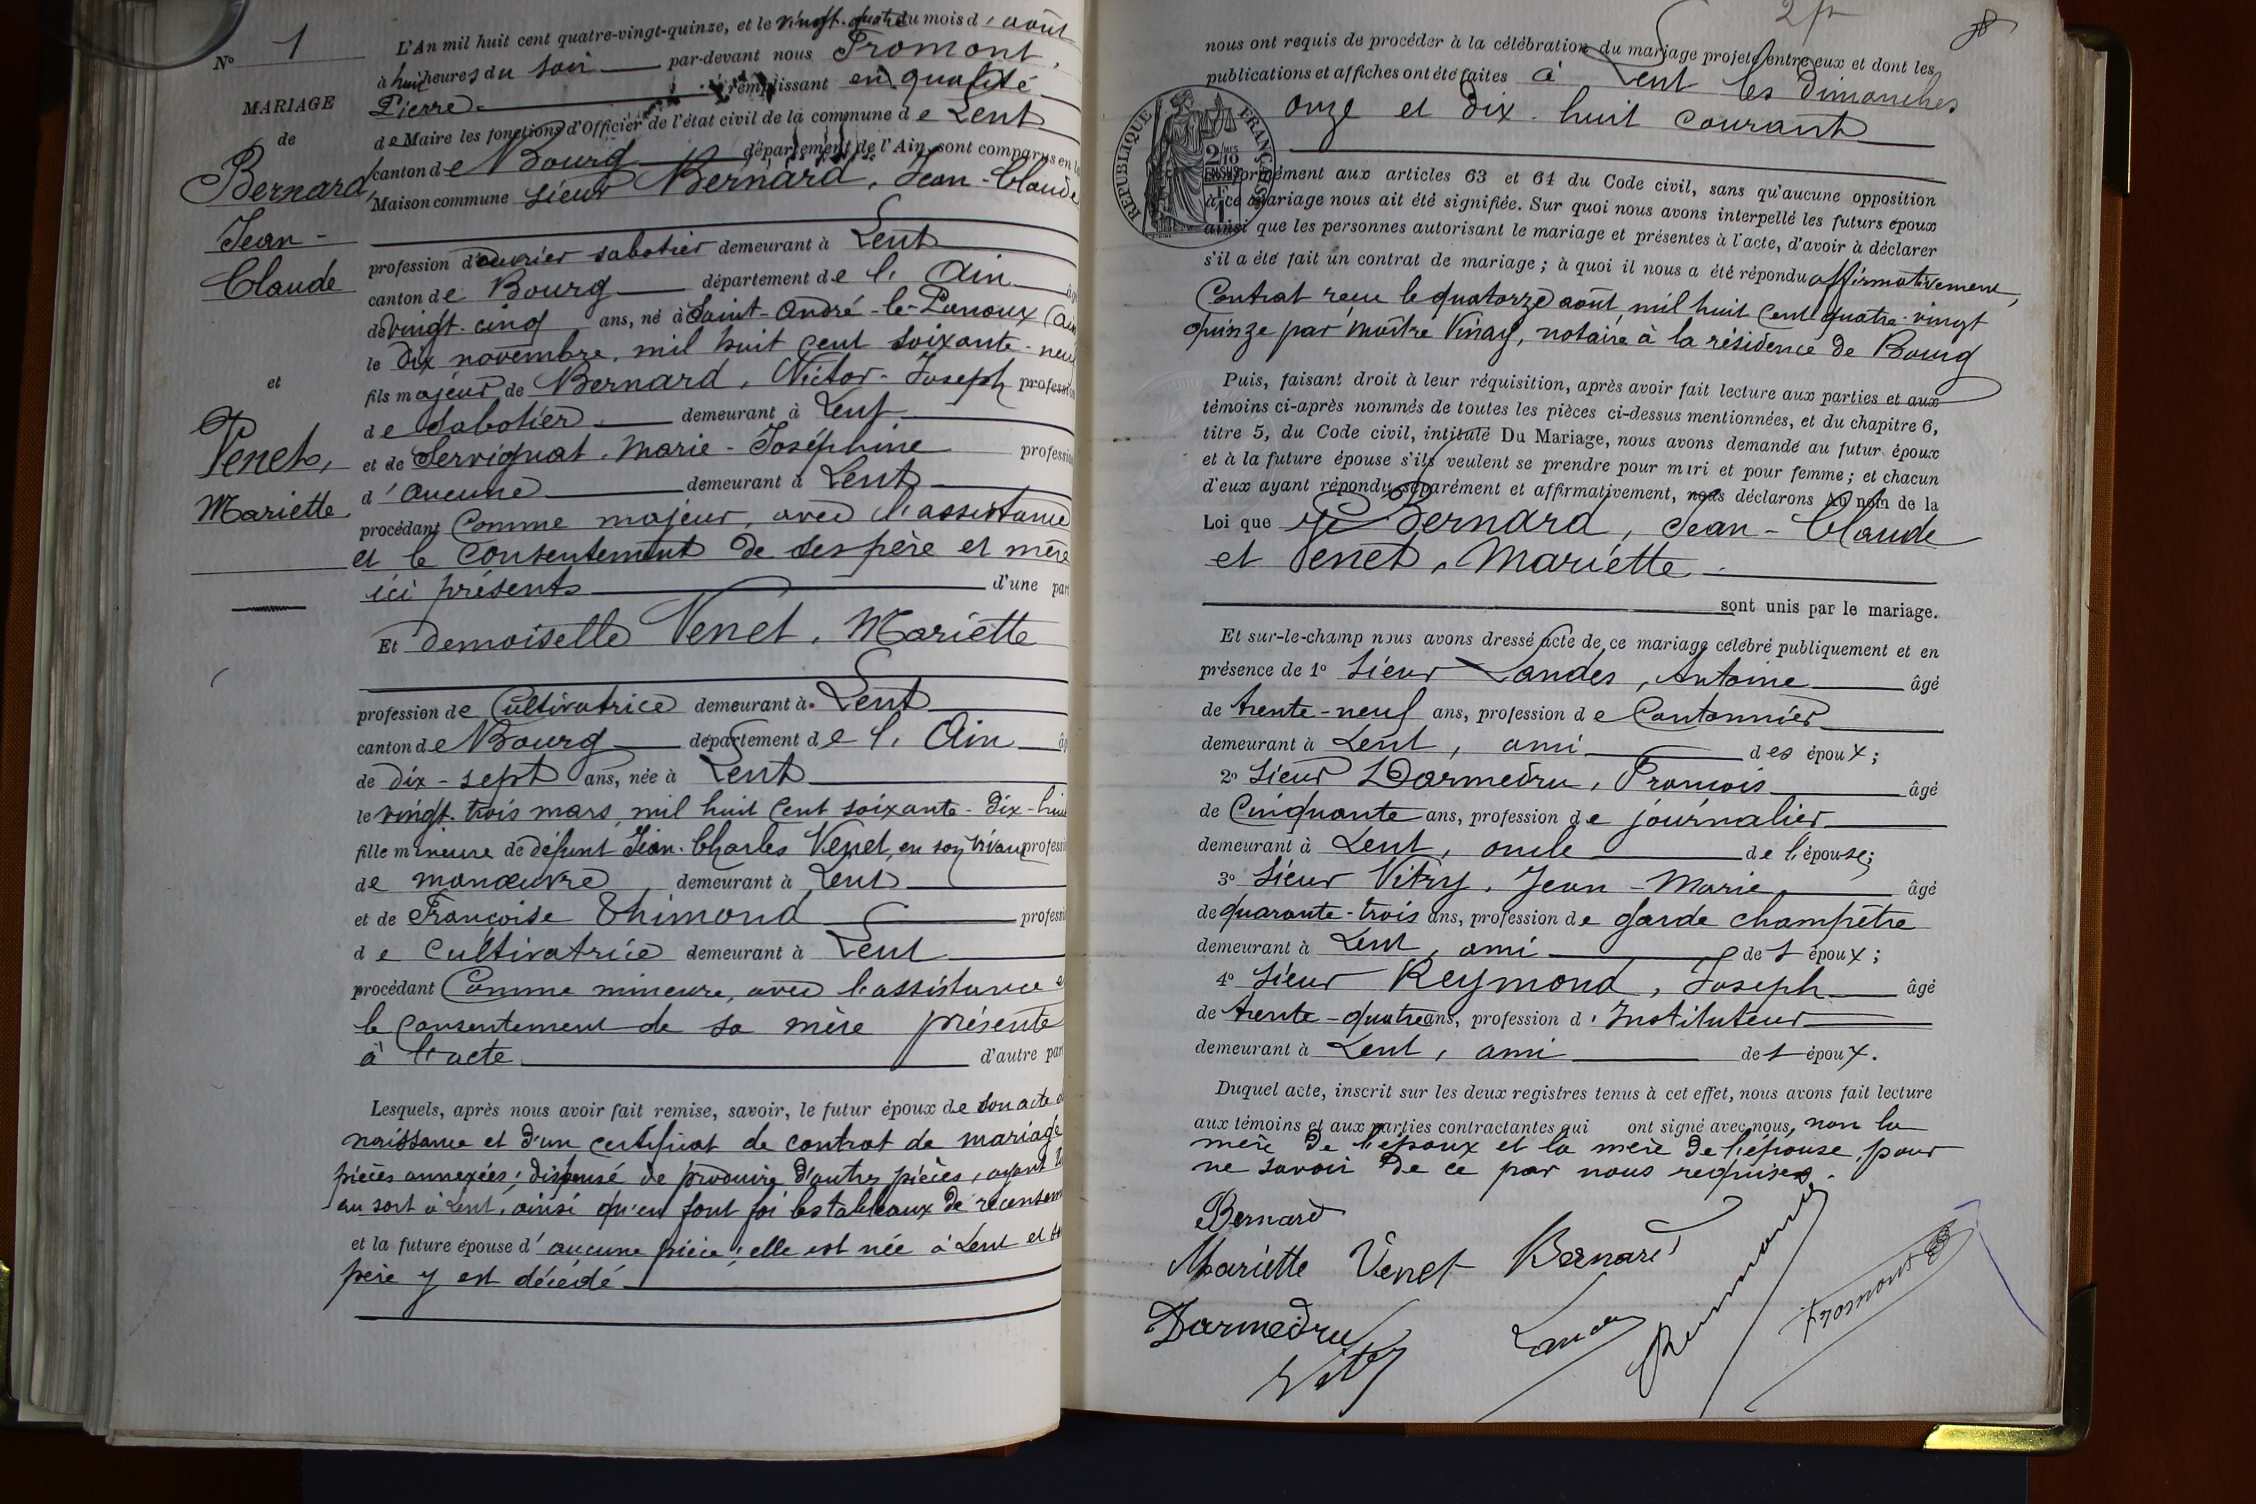 N° 1
MARIAGE
de
Bernard,
Jean-
Claude
et
Venet,
Mariette
L'An mil huit cent quatre-vingt-quinze, et le vingt-quatre du mois d'août
à huit heures du soir par-devant nous Fromont,
Pierre remplissant en qualité
de Maire les fonctions d'Officier de l'état civil de la commune de Lent
canton de Bourg département de l'Ain, sont comparus en la
Maison commune sieur Bernard, Jean-Claude
profession d'ouvrier sabotier demeurant à Lent
canton de Bourg département de l'Ain âgé
de vingt-cinq ans, né à Saint-André-le-Panoux (Ain
le dix novembre, mil huit cent soixante-neuf
fils majeur de Bernard, Victor-Joseph profession
de sabotier demeurant à Lent
et de Servignat, Marie-Joséphine profession
d'aucune demeurant à Lent
procédant comme majeur, avec l'assistance
et le consentement de ses père et mère
ici présents d'une part
Et demoiselle Venet, Mariette
profession de Cultivatrice demeurant à Lent
canton de Bourg département de l'Ain âg
de dix-sept ans, née à Lent
le vingt-trois mars, mil huit cent soixante-dix-huit
fille mineure de défunt Jean-Charles Venet, en son vivant profession
de manœuvre, demeurant à Lent
et de Françoise Thimond profession
de cultivatrice demeurant à Lent
procédant Comme mineure, avec l'assistance et
le consentement de sa mère présente
à l'acte d'autre part
Lesquels, après nous avoir fait remise, savoir, le futur époux de son acte de
naissance et d'un certificat de contrat de mariage
pièces annexées; dispensé de produire d'autres pièces, ayant
au sort à Lent, ainsi qu'en font foi les tableaux de recensem
et la future épouse d'aucune pièce; elle est née à Lent et son
père y est décédé
nous ont requis de procéder à la célébration du mariage projeté entre eux et dont les
publications et affiches ont été faites à Lent les dimanches
onze et dix-huit courant
RÉPUBLIQUE FRANÇAISE
2/10
EN SUS
conformément aux articles 63 et 64 du Code civil, sans qu'aucune opposition
à ce mariage nous ait été signifiée. Sur quoi nous avons interpellé les futurs époux
ainsi que les personnes autorisant le mariage et présentes à l'acte, d'avoir à déclarer
s'il a été fait un contrat de mariage; à quoi il nous a été répondu affirmativement,
Contrat reçu le quatorze août mil huit cent quatre-vingt
quinze par maître Vinay, notaire à la résidence de Bourg
Puis, faisant droit à leur réquisition, après avoir fait lecture aux parties et aux
témoins ci-après nommés de toutes les pièces ci-dessus mentionnées, et du chapitre 6,
titre 5, du Code civil, intitulé Du Mariage, nous avons demandé au futur époux
et à la future épouse s'ils veulent se prendre pour mari et pour femme; et chacun
d'eux ayant répondu séparément et affirmativement, nous déclarons au nom de la
Loi que Bernard, Jean-Claude
et Venet, Mariette
sont unis par le mariage.
Et sur-le-champ nous avons dressé acte de ce mariage célébré publiquement et en
présence de 1° sieur Landes, Antoine âgé
de trente-neuf ans, profession de Cantonnier
demeurant à Lent, ami des époux;
2° sieur Darmedru, François âgé
de Cinquante ans, profession de journalier
demeurant à Lent, oncle de l'épouse;
3° sieur Vitry, Jean-Marie âgé
de quarante-trois ans, profession de garde champêtre
demeurant à Lent, ami des époux;
4° sieur Reymond, Joseph âgé
de trente-quatre ans, profession d'Instituteur
demeurant à Lent, ami des époux.
Duquel acte, inscrit sur les deux registres tenus à cet effet, nous avons fait lecture
aux témoins et aux parties contractantes qui ont signé avec nous, non la
mère de l'époux et la mère de l'épouse, pour
ne savoir de ce par nous requises.
Bernard
Mariette Venet Bernard
Darmedru Landes Reymond Fromont
Vitry